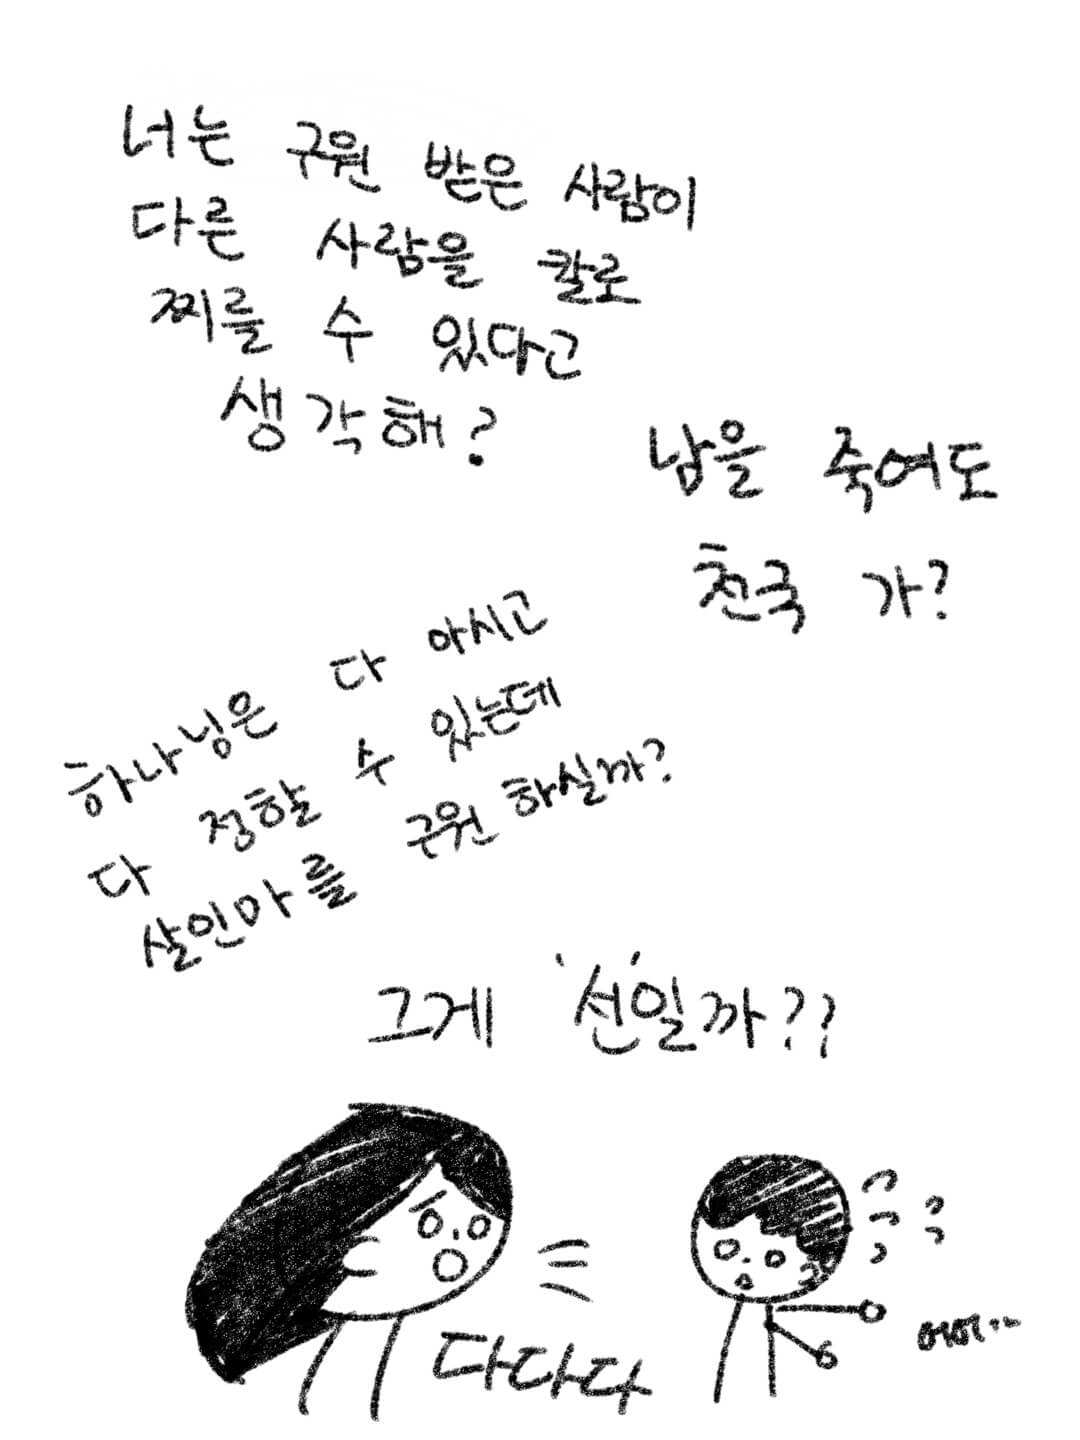 너는 구원 받은 사람이
다른 사람을 칼로
찌를 수 있다고
생각해?
남을 죽여도
천국 가?
하나님은 다 아시고
다 정할 수 있는데
살인마를 구원 하실까?
그게 '선'일까???
다다다
어어..